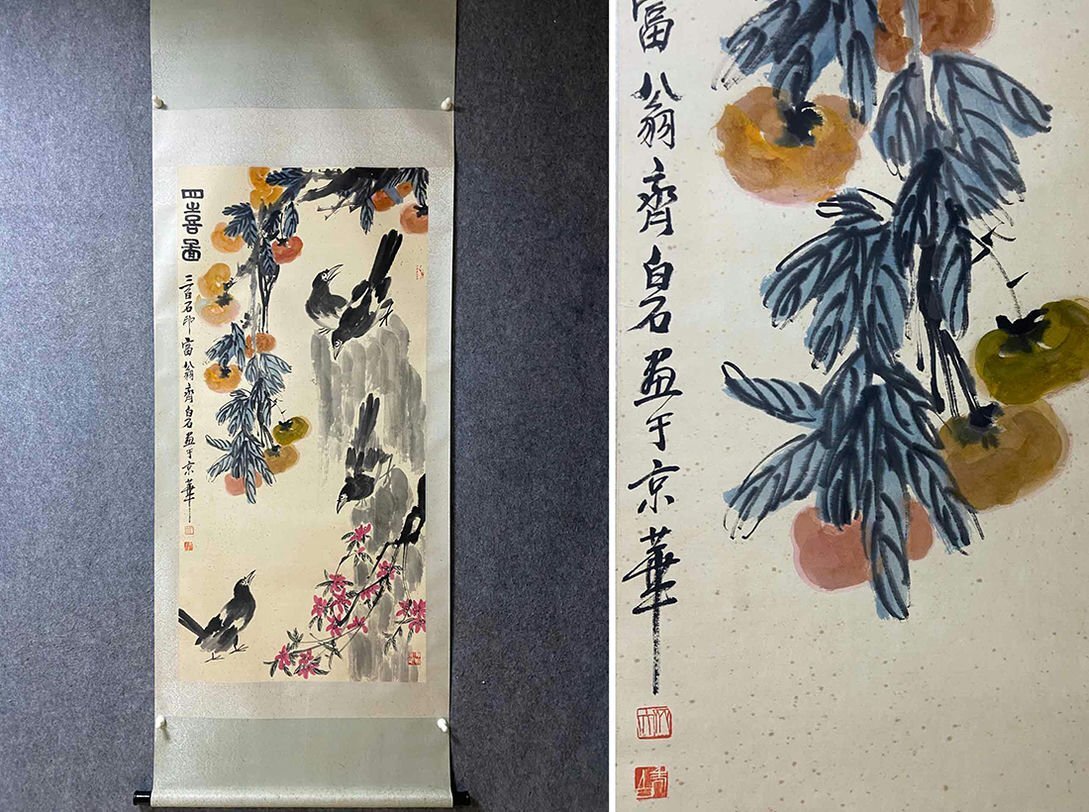 四喜圖
三百石印富翁齊白石画于京華
富翁齊白石画于京華